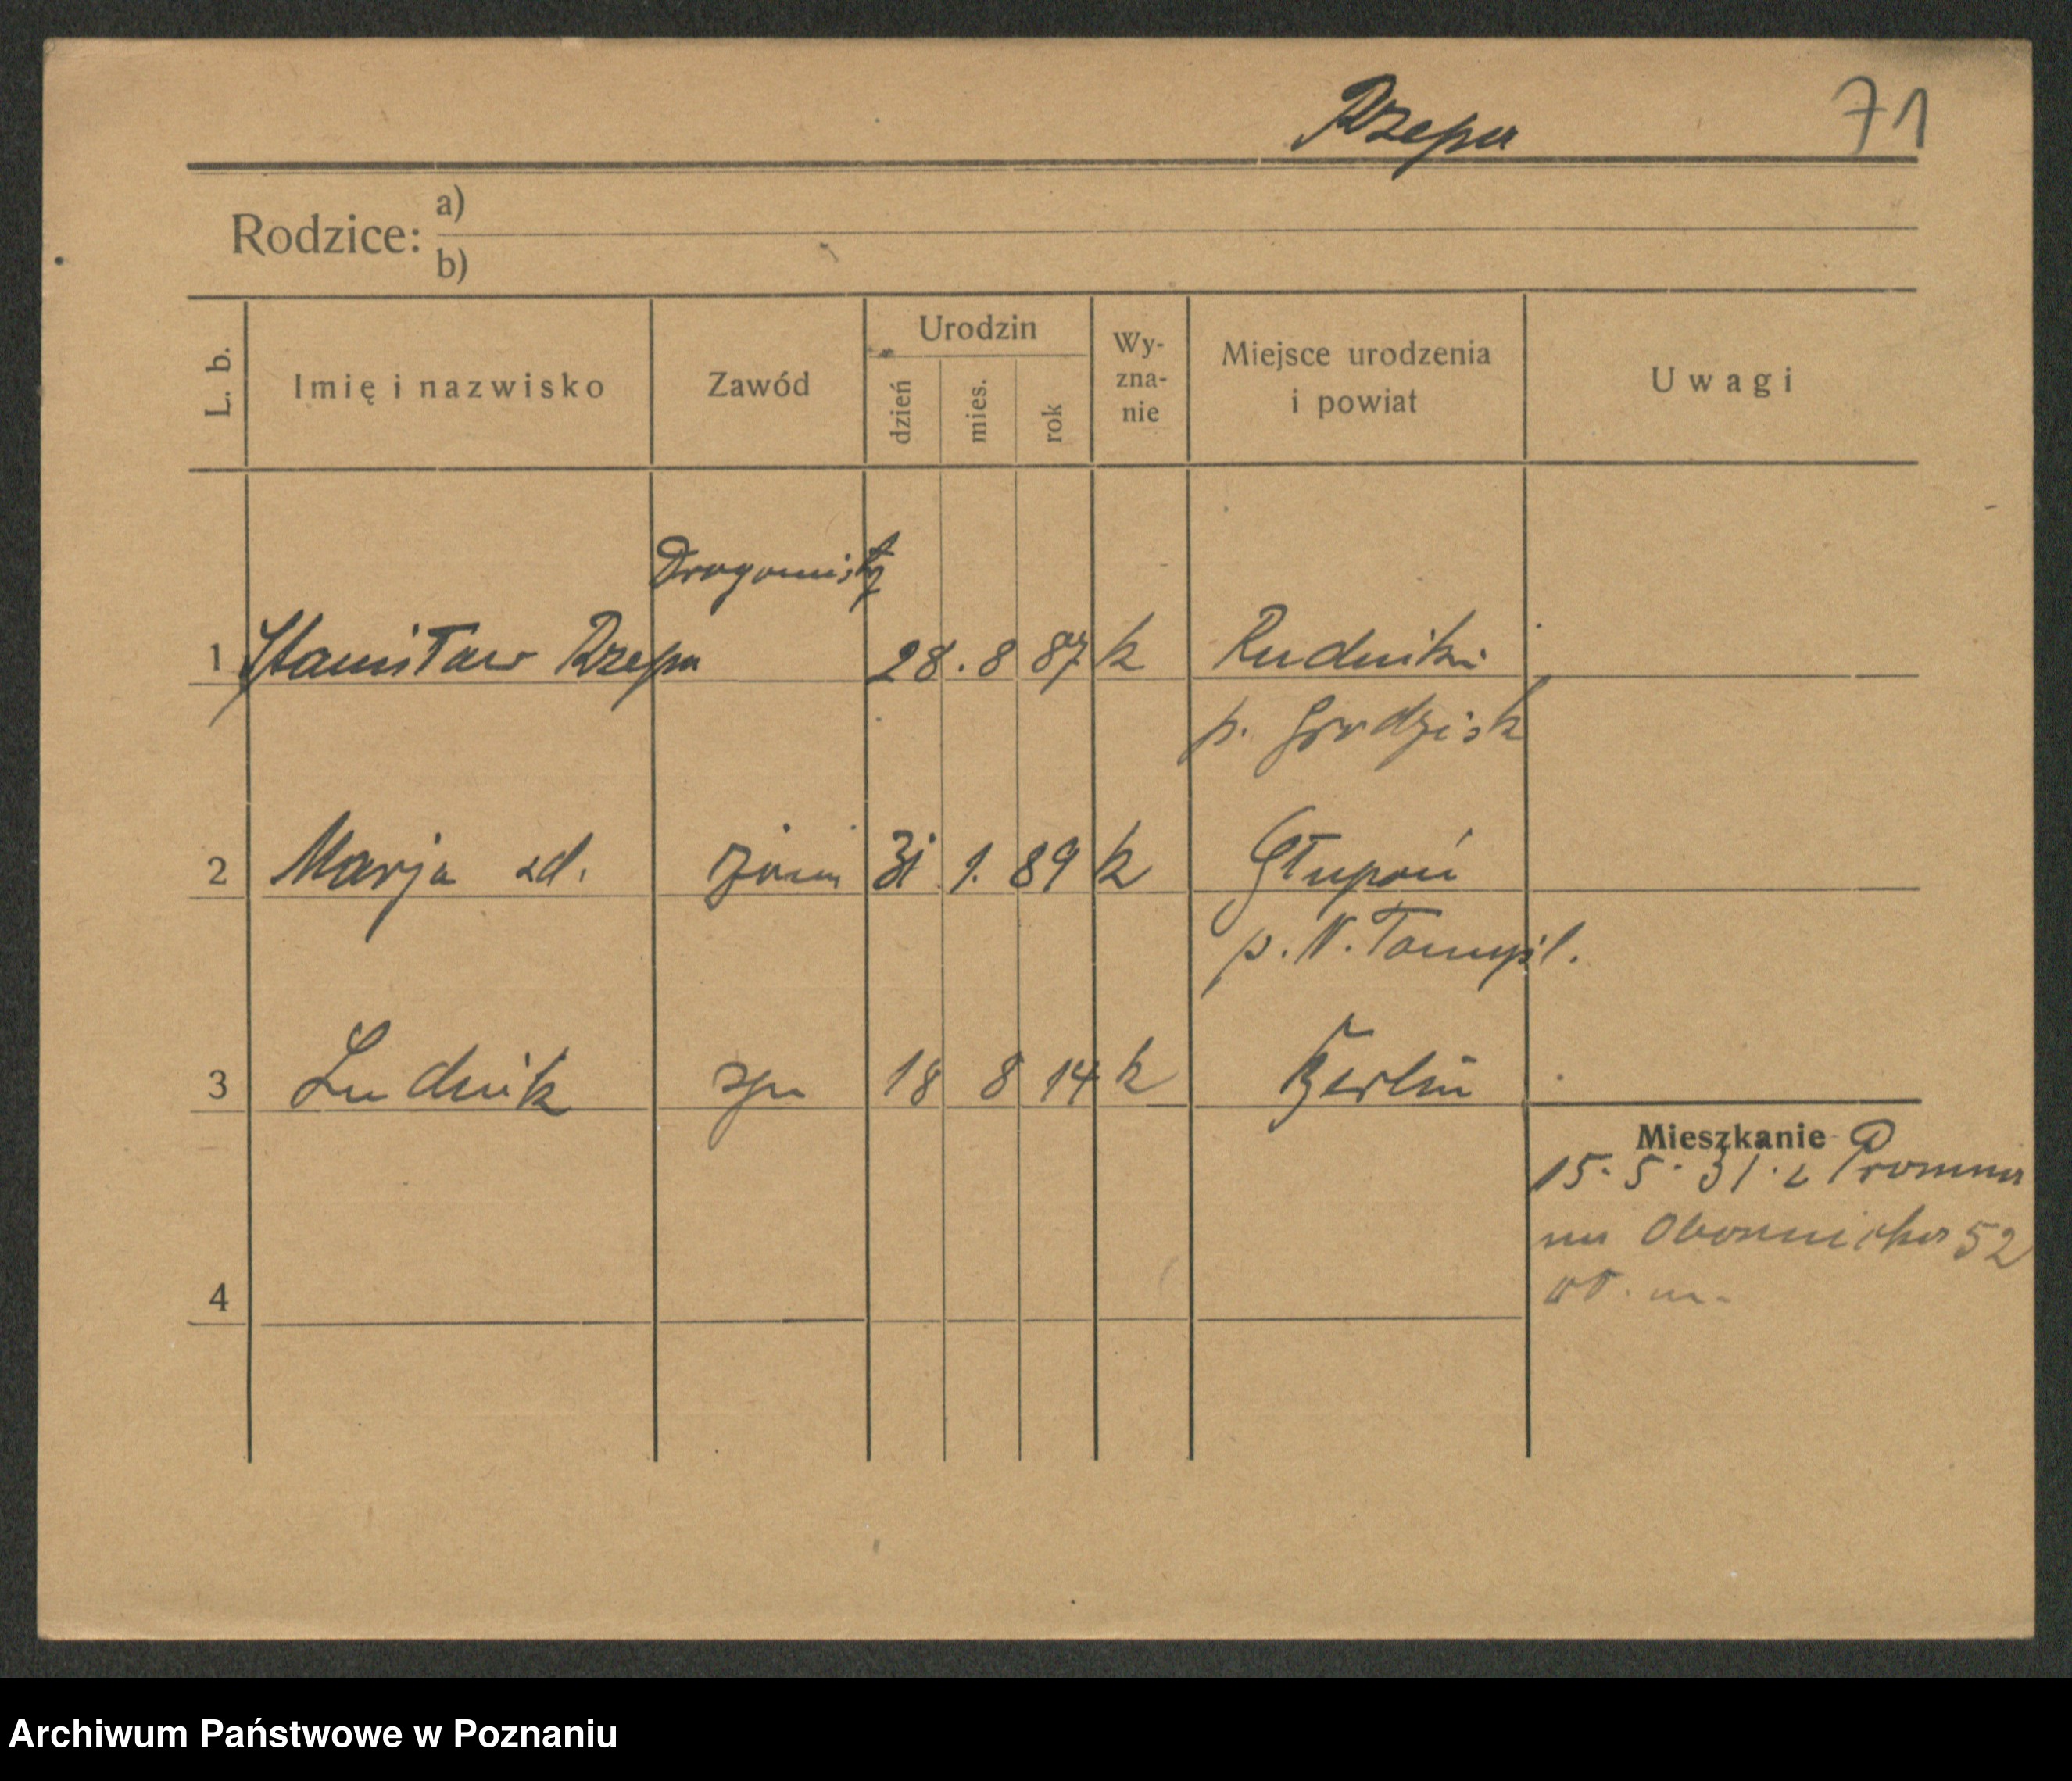 Rzepa 71
Rodzice: a)
b)
L. b. Imię i nazwisko Zawód Urodzin dzień mies. rok Wy-zna-nie Miejsce urodzenia i powiat Uwagi
1 Stanisław Rzepa 28. 8 87 k Rudniki
p. Grodzisk
2 Marja zd. żona 31 1. 89 k Głupoń
p. N. Tomyśl.
3 Ludwik syn 18 8 14 k Berlin
Mieszkanie
15. 5. 31. z
na Obornicka 52
4
Archiwum Państwowe w Poznaniu